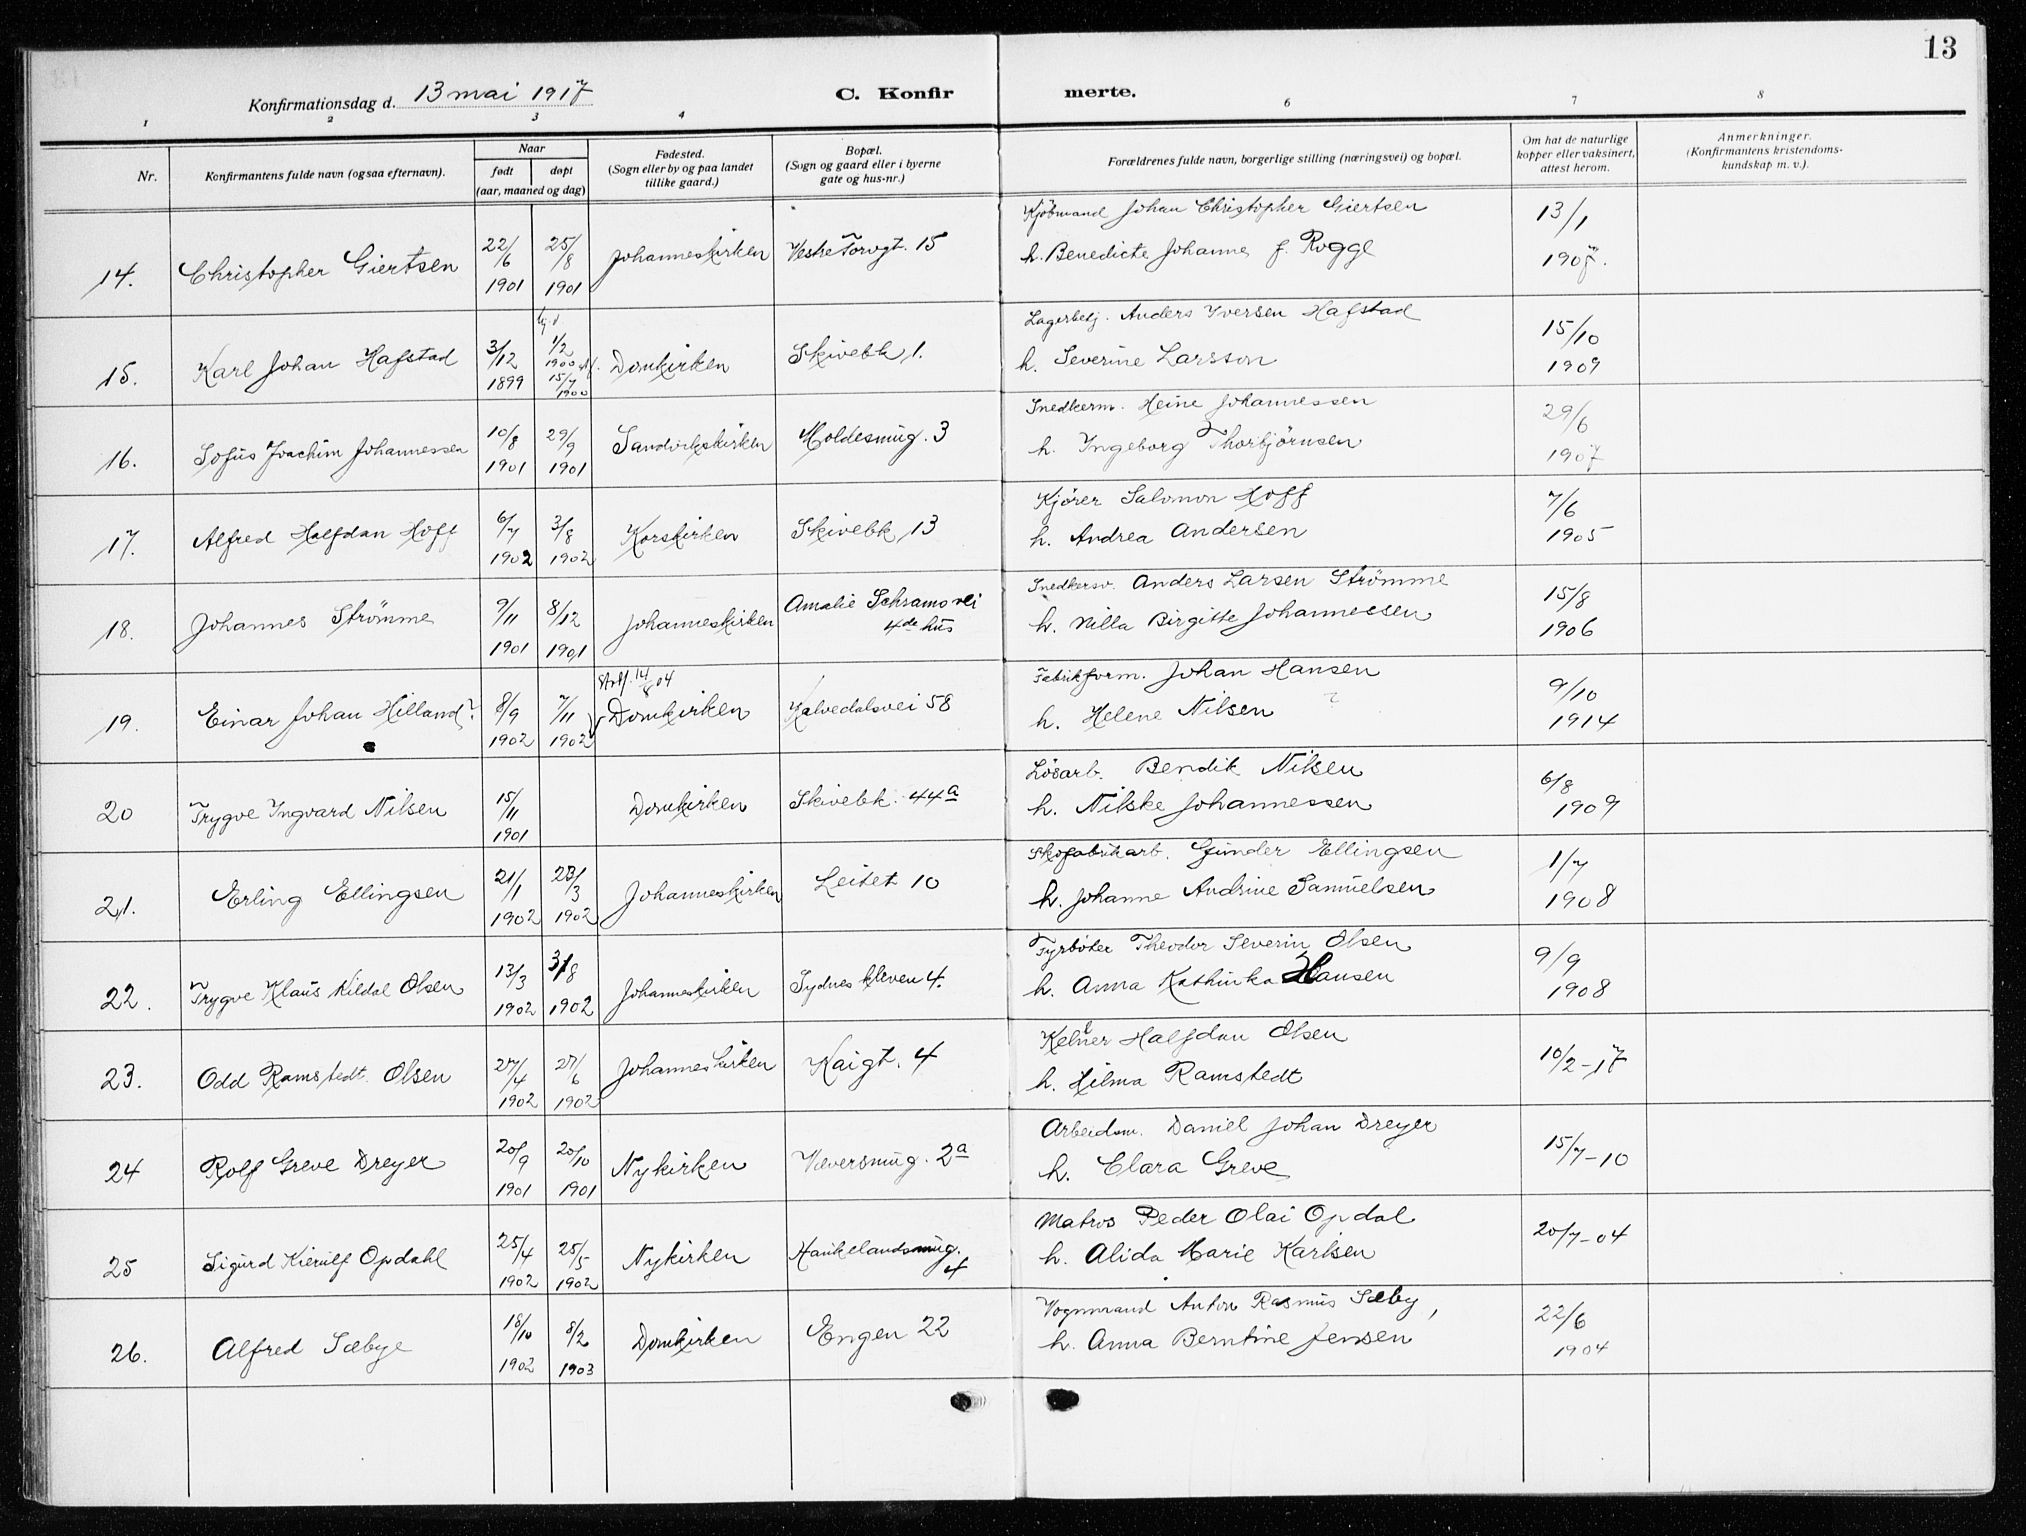 13
Konfirmationsdag d. 13 mai 1917 C. Konfir merte.
1 2 3 4 6 7 8
Nr. Konfirmantens fulde navn (ogsaa efternavn). Naar født døpt (aar, maaned og dag) Fødested. (Sogn eller by og paa landet tillike gaard.) Bopæl. (Sogn og gaard eller i byerne gate og hus-nr.) Forældrenes fulde navn, borgerlige stilling (næringsvei) og bopæl. Om hat de naturlige kopper eller vaksinert, attest herom. Anmerkninger. (Konfirmantens kristendomskundskap m. v.).
14. Christopher Giertsen 22/6 1901 25/8 1901 Johanneskirken Vestre Torvgt. 15 Kjøbmand Johan Christopher Giertsen
h. Benedicte Johanne f. Rogge 13/1 1907.
15. Karl Johan Hafstad 3/12 1899 1/2 1900 15/7 1900 Domkirken Skivebk. 1. Lagerbetj. Anders Iversen Hafstad
h. Severine Larsson 15/10 1909
16. Sofus Joachim Johannessen 10/8 1901 29/9 1901 Sandvikskirken Holdesmug. 3 Snedkerm. Heine Johannessen
h. Ingeborg Thorbjørnsen 29/6 1907
17. Alfred Halfdan Hoff 6/7 1902 3/8 1902 Korskirken Skivebk. 13 Kjører Salomon Hoff
h. Andrea Andersen 7/6 1905
18. Johannes Strømme 9/11 1901 8/12 1901 Johanneskirken Amalie Schrams vei 4de hus Snedkersv. Anders Larsen Strømme
h. Nilla Birgitte Johannessen 15/8 1906
19. Einar Johan Hilland? 8/9 1902 7/11 1902 14/8 04 Domkirken Kalvedalsvei 58 Fabrikform. Johan Hansen
h. Helene Nilsen ? 9/10 1914
20 Trygve Ingvard Nilsen 15/11 1901 Domkirken Skivebk. 44a Løsarb. Bendik Nilsen
h. Nilske Johannessen 6/8 1909
21. Erling Ellingsen 21/1 1902 23/3 1902 Johanneskirken Leitet 10 Skofabrikarb. Gunder Ellingsen
h. Johanne Andrine Samuelsen 1/7 1908
22. Trygve Klaus Kildal Olsen 13/3 1902 31/8 1902 Johanneskirken Sydneskleven 4. Fyrbøter Theodor Severin Olsen
h. Anna Kathinka Hansen 9/9 1908
23. Odd Ramstedt Olsen 27/4 1902 27/6 1902 Johanneskirken Kaigt. 4 Kelner Halfdan Olsen
h. Hilma Ramstedt 10/2-17
24 Rolf Greve Dreyer 20/9 1901 20/10 1901 Nykirken Væversmug. 2a Arbeidsm. Daniel Johan Dreyer
h. Clara Greve 15/7-10
25 Sigurd Kierulf Opdahl 25/4 1902 25/5 1902 Nykirken Haukelandsmug. 4 Matros Peder Olai Opdal
h. Alida Marie Karlsen 20/7-04
26. Alfred Sæbye 18/10 1902 8/2 1903 Domkirken Engen 22 Vognmand Anton Rasmus Sæby,
h. Anna Berntine Jensen 22/6 1904